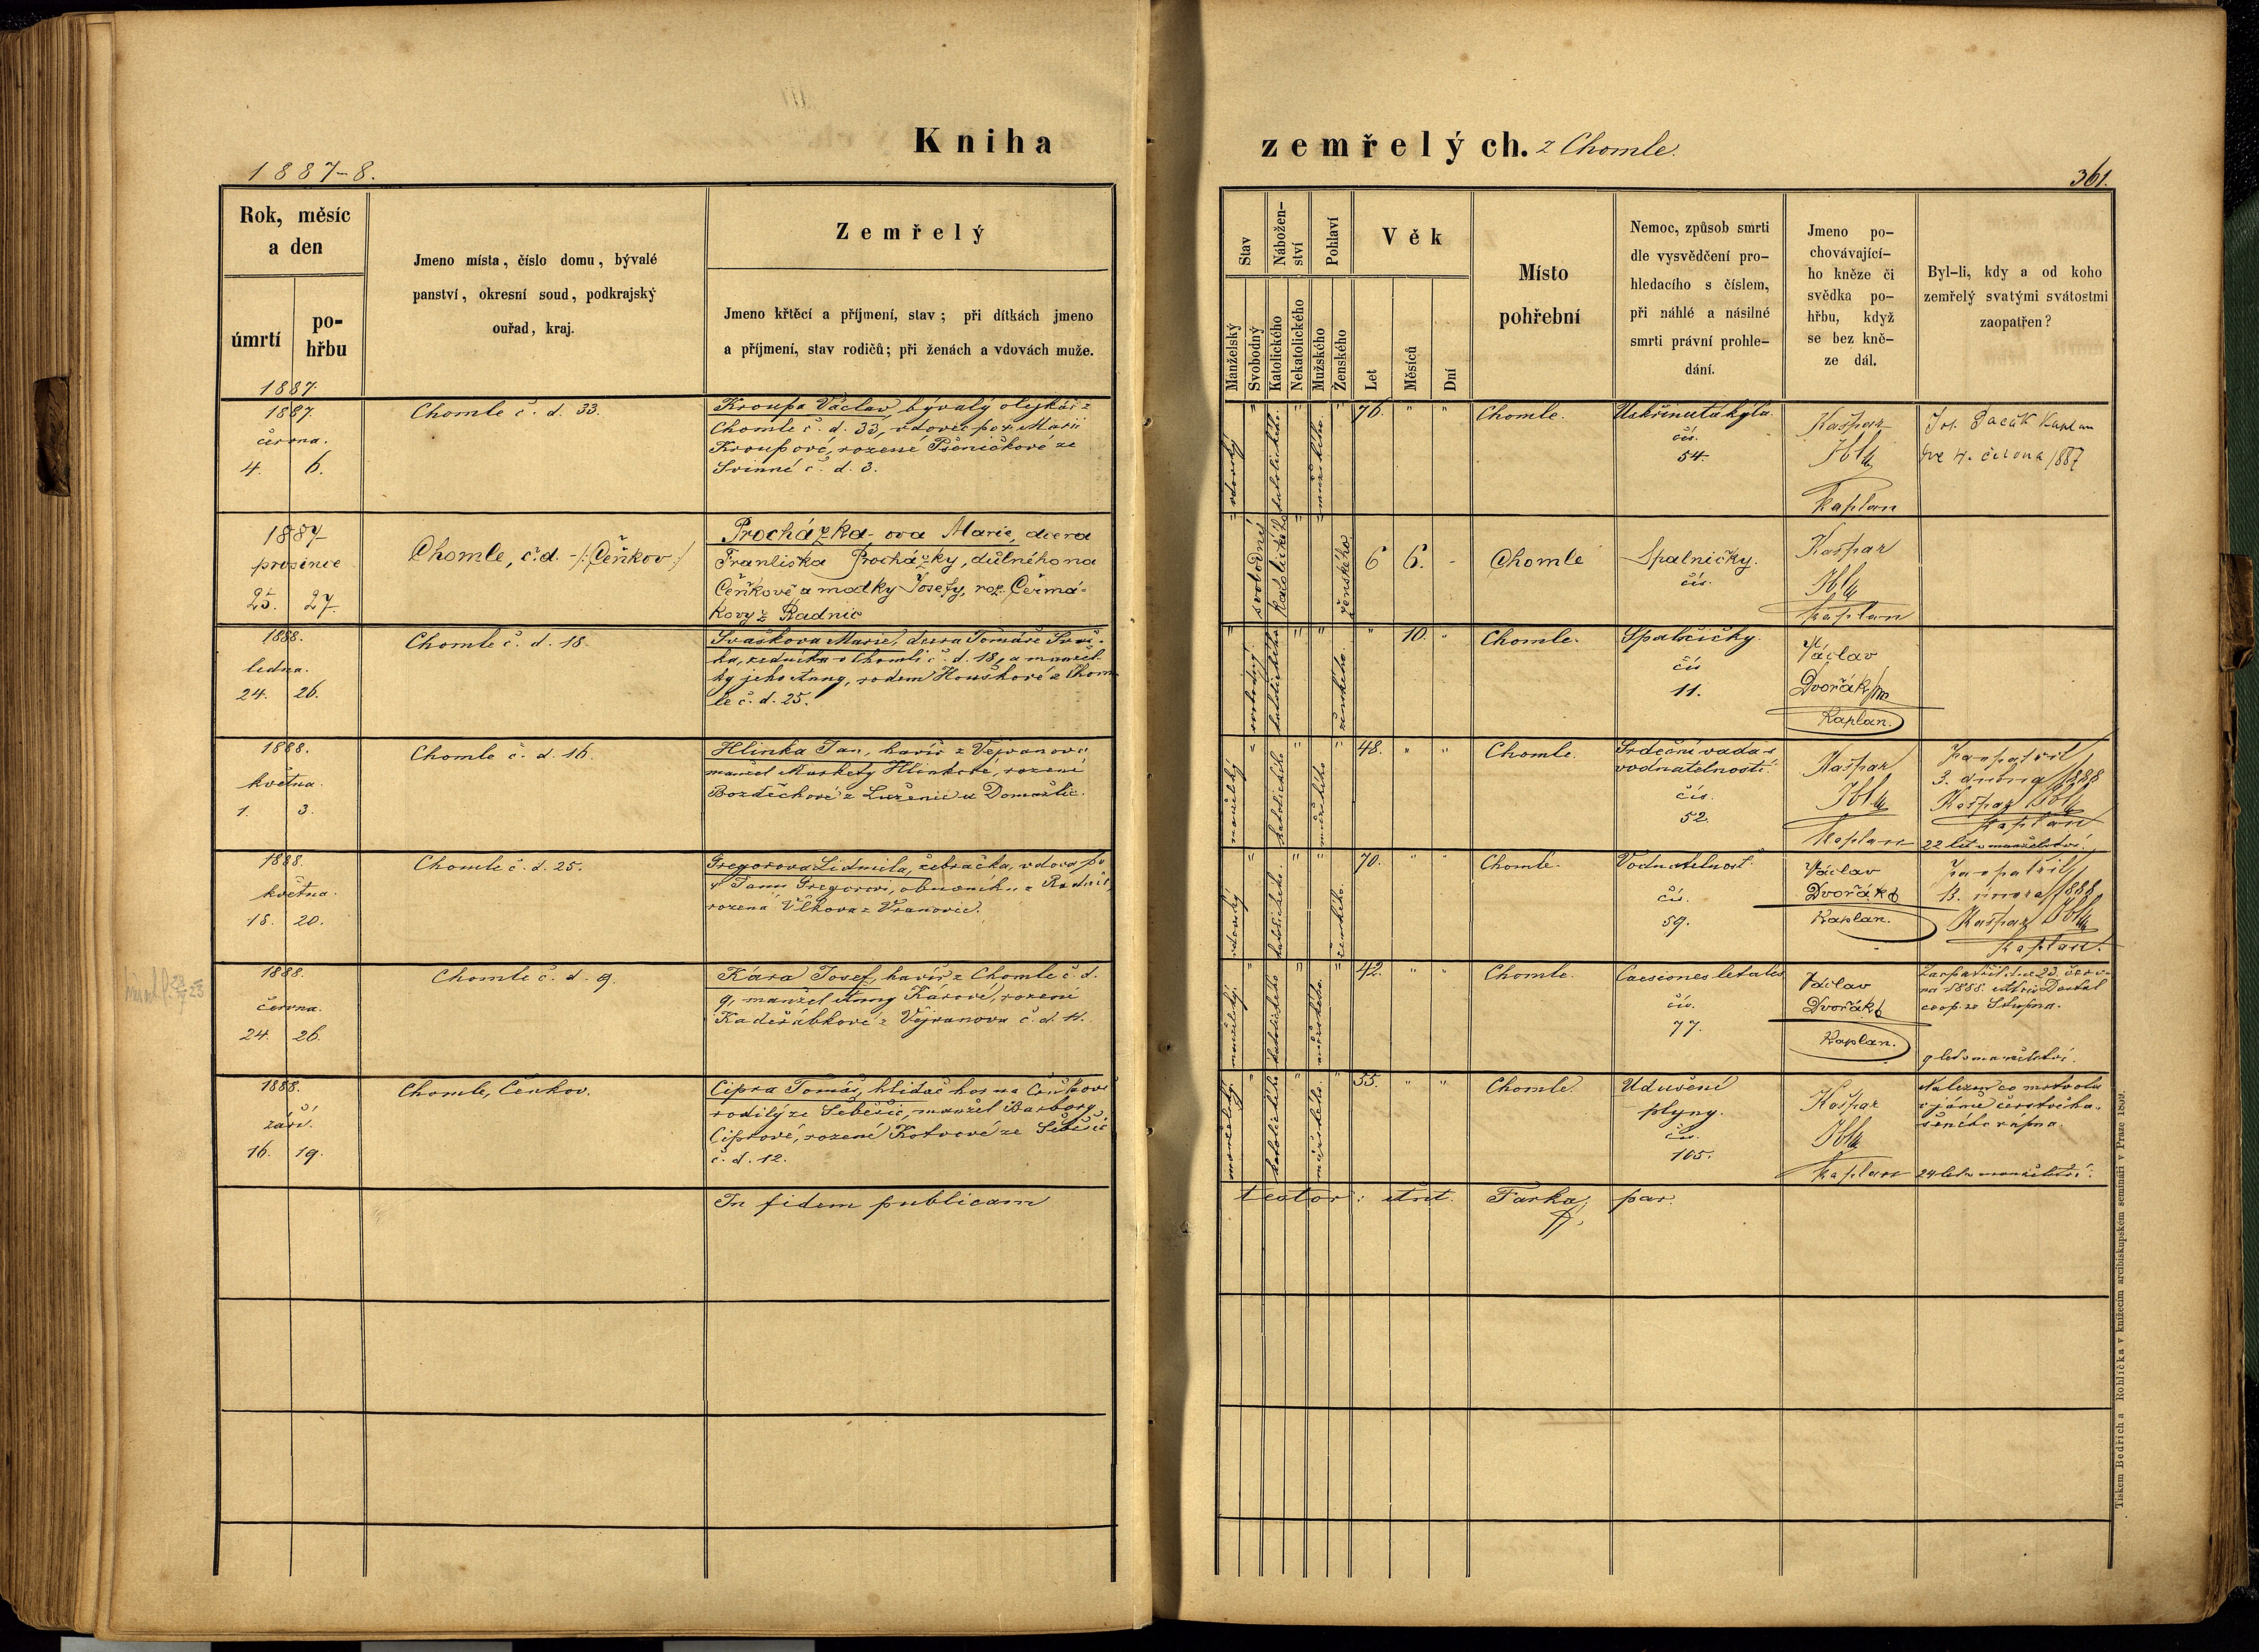 Kniha
zemřelých. z Chomle.
1887-8.
361.
Rok, měsíc
a den
úmrtí
po-
hřbu
Jmeno místa, číslo domu, bývalé
panství, okresní soud, podkrajský
ouřad, kraj.
Zemřelý
Jmeno křtěcí a příjmení, stav; při dítkách jmeno
a příjmení, stav rodičů; při ženách a vdovách muže.
Stav
Manželský
Svobodný
Nábožen-
ství
Katolického
Nekatolického
Pohlaví
Mužského
Ženského
Věk
Let
Měsíců
Dní
Místo
pohřební
Nemoc, způsob smrti
dle vysvědčení pro-
hledacího s číslem,
při náhlé a násilné
smrti právní prohle-
dání.
Jmeno po-
chovávající-
ho kněze či
svědka po-
hřbu, když
se bez kně-
ze dál.
Byl-li, kdy a od koho
zemřelý svatými svátostmi
zaopatřen?
1887
1887.
června.
4. 6.
Chomle č. d. 33.
Kroupa Václav, bývalý olejkář z
Chomle č. d. 33, vdovec po Marii
Kroupové, rozené Pšeničkové ze
Svinné č. d. 3.
vdovský " katolického. " mužského. " 76. " "
Chomle.
Uskřinutá kýla.
čís.
54.
Kašpar
Ibl
kaplan
Jos. Pacák Kaplan
dne 4. června 1887
1887
prosince
25. 27.
Chomle, č. d. - /: Čeňkov :/
Procházka-ova Marie, dcera
Františka Procházky, důlného na
Čeňkově a matky Josefy, roz. Čermá-
kovy z Radnic
svobodné katolického " ženského 6 6. -
Chomle
Spalničky.
čís.
Kašpar
Ibl
kaplan
1888.
ledna.
24. 26.
Chomle č. d. 18.
Svašková Marie, dcera Tomáše Svaš-
ka, zedníka v Chomli č. d. 18, a manžel-
ky jeho Anny, rodem Houškové z Chom-
le č. d. 25.
" svobodný. katolického " " ženského. " 10. "
Chomle.
Spalničky.
čís
11.
Václav
Dvořák
Kaplan.
1888.
května.
1. 3.
Chomle č. d. 16.
Hlinka Jan, havíř z Vejvanova
manžel Markéty Hlinkové, rozené
Bozděchové z Luženic u Domažlic.
manželský " katolického " mužského " 48. " "
Chomle.
Srdeční vada s
vodnatelností.
čís.
52.
Kašpar
Ibl
Kaplan
Zaopatřil
3. dubna 1888
Kašpar Ibl
kaplan
22 let v manželství.
1888.
května.
18. 20.
Chomle č. d. 25.
Gregorova Lidmila, žebračka, vdova po
Janu Gregorovi, obuvníku z Radnic,
rozená Vlkova z Vranovic.
vdovský " katolického. " " ženského. 70. " "
Chomle.
Vodnatelnost
čís.
59.
Václav
Dvořák
Kaplan.
Zaopatřil
února 1888
Kašpar Ibl
kaplan.
1888.
června.
24. 26.
Chomle č. d. 9.
Kára Josef, havíř z Chomle č. d.
9, manžel Anny Kárové, rozené
Kadeřábkové z Vejvanova č. d. 11.
manželský. " katolického " mužského. " 42. " "
Chomle.
Caesiones letales
čís.
77.
Václav
Dvořák
Kaplan.
Zaopatřil dne 23. červ-
na 1888. Alois Dostal
coop. ze Stupna.
9 let v manželství.
1888.
září.
16. 19.
Chomle, Čenkov.
Cipra Tomáš, hlídač hor na Čeňkově
rodilý ze Seběšic, manžel Barbory
Ciprové, rozené Kotvové ze Seběšic
č. d. 12.
manželský. " katolického " mužského. " 55. " "
Chomle.
Udušení
plyny.
čís.
105.
Kašpar
Ibl
kaplan
Nalezen co mrtvola
v jámě čerstvě ha-
šeného vápna.
24 let v manželství.
In fidem publicam
testor: Ant. Farka, par.
Tiskem Bedřicha Rohlíčka v knížecím arcibiskupském semináři v Praze 1869.